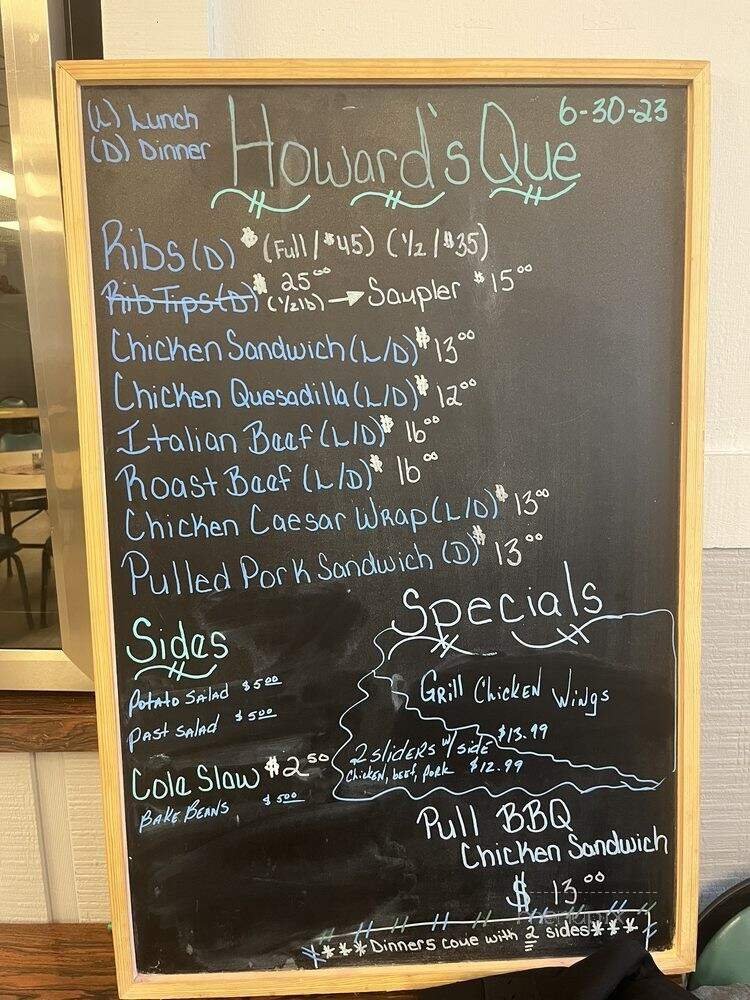 (L) Lunch
(D) Dinner
Howard's Que
6-30-23
Ribs (D) $ (Full / $45) (1/2 / $35)
Rib Tips (D) $ 25⁰⁰ (1/2 lb) → Saupler $ 15⁰⁰
Chicken Sandwich (L/D) $ 13⁰⁰
Chicken Quesadilla (L/D) $ 12⁰⁰
Italian Beef (L/D) $ 16⁰⁰
Roast Beef (L/D) $ 16⁰⁰
Chicken Caesar Wrap (L/D) $ 13⁰⁰
Pulled Pork Sandwich (D) $ 13⁰⁰
Sides
Potato Salad $5⁰⁰
Past Salad $5⁰⁰
Cole Slaw $2⁵⁰
Bake Beans $5⁰⁰
Specials
Grill Chicken Wings
$13.99
2 sliders w/ side
Chicken, beef, pork $12.99
Pull BBQ
Chicken Sandwich
$ 13⁰⁰
***Dinners coue with 2 sides***